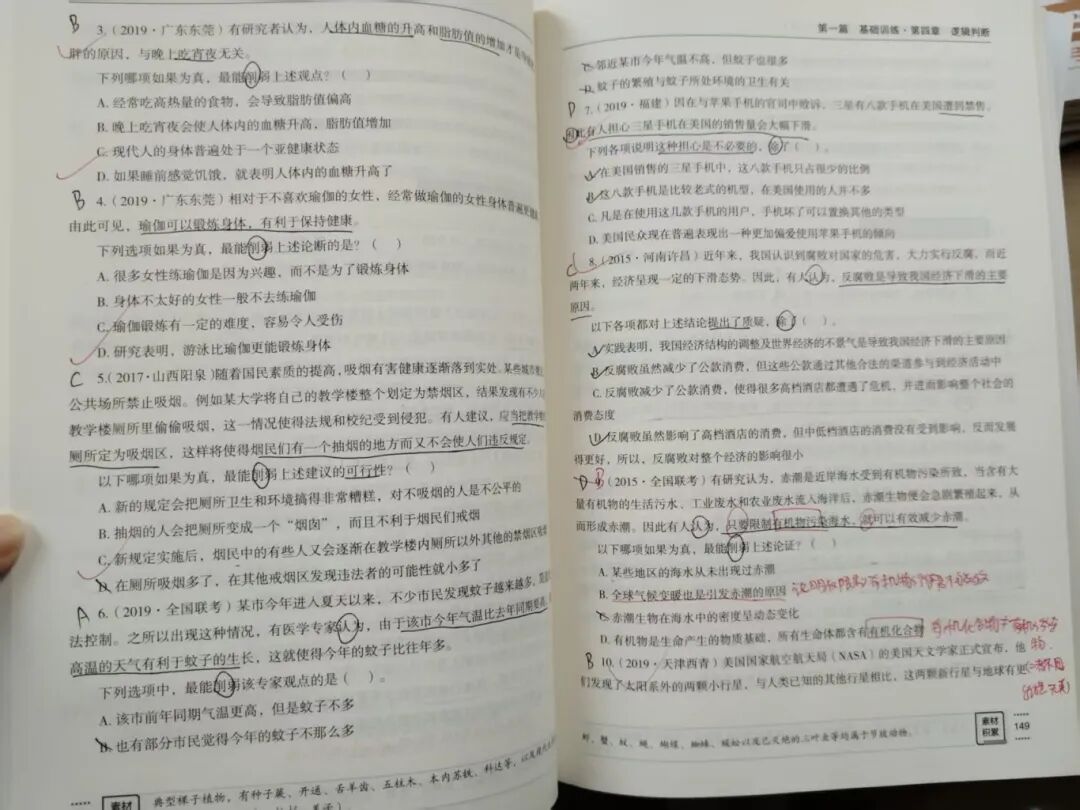 B 3.（2019·广东东莞）有研究者认为，人体内血糖的升高和脂肪值的增加才是
胖的原因，与晚上吃宵夜无关。
下列哪项如果为真，最能削弱上述观点？（ ）
A. 经常吃高热量的食物，会导致脂肪值偏高
B. 晚上吃宵夜会使人体内的血糖升高，脂肪值增加
C. 现代人的身体普遍处于一个亚健康状态
D. 如果睡前感觉饥饿，就表明人体内的血糖升高了
B 4.（2019·广东东莞）相对于不喜欢瑜伽的女性，经常做瑜伽的女性身体普遍更健
由此可见，瑜伽可以锻炼身体，有利于保持健康。
下列选项如果为真，最能削弱上述论断的是？（ ）
A. 很多女性练瑜伽是因为兴趣，而不是为了锻炼身体
B. 身体不太好的女性一般不去练瑜伽
C. 瑜伽锻炼有一定的难度，容易令人受伤
D. 研究表明，游泳比瑜伽更能锻炼身体
C 5.（2017·山西阳泉）随着国民素质的提高，吸烟有害健康逐渐落到实处。某些城市
公共场所禁止吸烟。例如某大学将自己的教学楼整个划定为禁烟区，结果发现有不少人
教学楼厕所里偷偷吸烟，这一情况使得法规和校纪受到侵犯。有人建议，应当把教学
厕所定为吸烟区，这样将使得烟民们有一个抽烟的地方而又不会使人们违反规定。
以下哪项如果为真，最能削弱上述建议的可行性？（ ）
A. 新的规定会把厕所卫生和环境搞得非常糟糕，对不吸烟的人是不公平的
B. 抽烟的人会把厕所变成一个“烟囱”，而且不利于烟民们戒烟
C. 新规定实施后，烟民中的有些人又会逐渐在教学楼内厕所以外其他的禁烟区吸烟
D. 在厕所吸烟多了，在其他戒烟区发现违法者的可能性就小了
A 6.（2019·全国联考）某市今年进入夏天以来，不少市民发现蚊子越来越多，
法控制。之所以出现这种情况，有医学专家认为，由于该市今年气温比去年同期要高，
高温的天气有利于蚊子的生长，这就使得今年的蚊子比往年多。
下列选项中，最能削弱该专家观点的是（ ）。
A. 该市前年同期气温更高，但是蚊子不多
B. 也有部分市民觉得今年的蚊子不那么多
素材
典型裸子植物，有种子蕨、开通、舌羊齿、五柱木、本内苏铁、科达等，
第一篇 基础训练·第四章 逻辑判断
C. 邻近某市今年气温不高，但蚊子也很多
D. 蚊子的繁殖与蚊子所处环境的卫生有关
D 7.（2019·福建）因在与苹果手机的官司中败诉，三星有八款手机在美国遭到禁售。
因此有人担心三星手机在美国的销售量会大幅下滑。
下列各项说明这种担心是不必要的，除了（ ）。
A. 在美国销售的三星手机中，这八款手机只占很少的比例
B. 这八款手机是比较老式的机型，在美国使用的人并不多
C. 凡是在使用这几款手机的用户，手机坏了可以置换其他的类型
D. 美国民众现在普遍表现出一种更加偏爱使用苹果手机的倾向
C 8.（2015·河南许昌）近年来，我国认识到腐败对国家的危害，大力实行反腐，而近
两年来，经济呈现一定的下滑态势。因此，有人认为，反腐败是导致我国经济下滑的主要
原因。
以下各项都对上述结论提出了质疑，除了（ ）。
A. 实践表明，我国经济结构的调整及世界经济的不景气是导致我国经济下滑的主要原因
B. 反腐败虽然减少了公款消费，但这些公款通过其他合法的渠道参与到经济活动中
C. 反腐败减少了公款消费，使得很多高档酒店都遭遇了危机，并进而影响整个社会的
消费态度
D. 反腐败虽然影响了高档酒店的消费，但中低档酒店的消费没有受到影响，反而发展
得更好，所以，反腐败对整个经济的影响很小
D B 9.（2015·全国联考）有研究认为，赤潮是近岸海水受到有机物污染所致，当含有大
量有机物的生活污水、工业废水和农业废水流入海洋后，赤潮生物便会急剧繁殖起来，从
而形成赤潮。因此有人认为，只要限制有机物污染海水，就可以有效减少赤潮。
以下哪项如果为真，最能削弱上述论证？（ ）
A. 某些地区的海水从未出现过赤潮
B. 全球气候变暖也是引发赤潮的原因
C. 赤潮生物在海水中的密度呈动态变化
D. 有机物是生命产生的物质基础，所有生命体都含有有机化合物
B 10.（2019·天津西青）美国国家航空航天局（NASA）的美国天文学家正式宣布，他
们发现了太阳系外的两颗小行星，与人类已知的其他行星相比，这两颗新行星与地球有更
虾、蟹、蚁、蝇、蝴蝶、蜘蛛、蜈蚣以及已灭绝的三叶虫等均属于节肢动物。
素材
积累
149